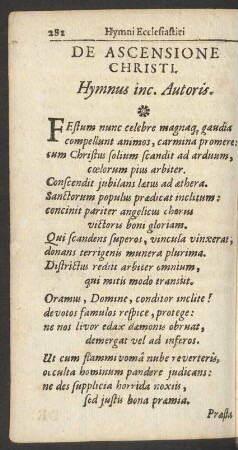 282 Hymni Ecclesiastici
DE ASCENSIONE
CHRISTI.
Hymnus inc. Autoris.
FEstum nunc celebre magnaq; gaudia
compellunt animos, carmina promere:
cum Christus solium scandit ad arduum,
cœlorum pius arbiter.
Conscendit jubilans lætus ad æthera.
Sanctorum populus prædicat inclitum:
concinit pariter angelicus chorus
victoris boni gloriam.
Qui scandens superos, vincula vinxerat,
donans terrigenis munera plurima.
Districtus redit arbiter omnium,
qui mitis modo transiit.
Oramus, Domine, conditor inclite!
devotos famulos respice, protege:
ne nos livor edax dæmonis obruat,
demergat vel ad inferos.
Ut cum flammivomâ nube reverteris,
occulta hominum pandere judicans:
ne des supplicia horrida noxiis,
sed justis bona præmia.
Præsta